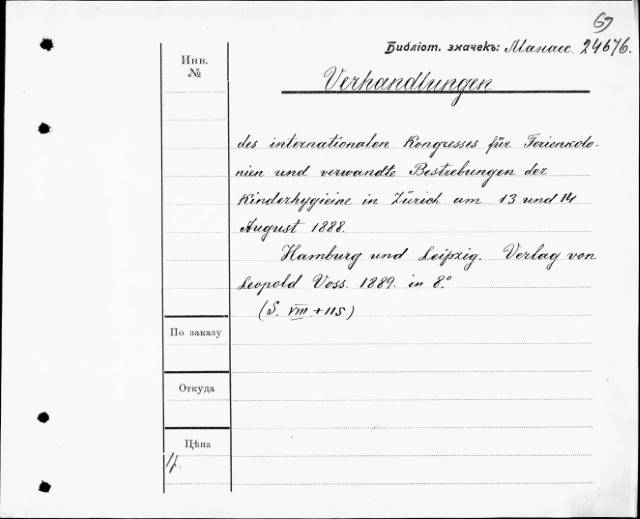 69
Библіот. значекъ: Манасс. 24676.
Инв.
№
Verhandlungen
des internationalen Kongresses für Ferienkolo-
nien und verwandte Bestrebungen der
Kinderhygieine in Zürich am 13 und 14
August 1888.
Hamburg und Leipzig. Verlag von
Leopold Voss. 1889. in 8.°
(S. VIII + 115)
По заказу
Откуда
Цѣна